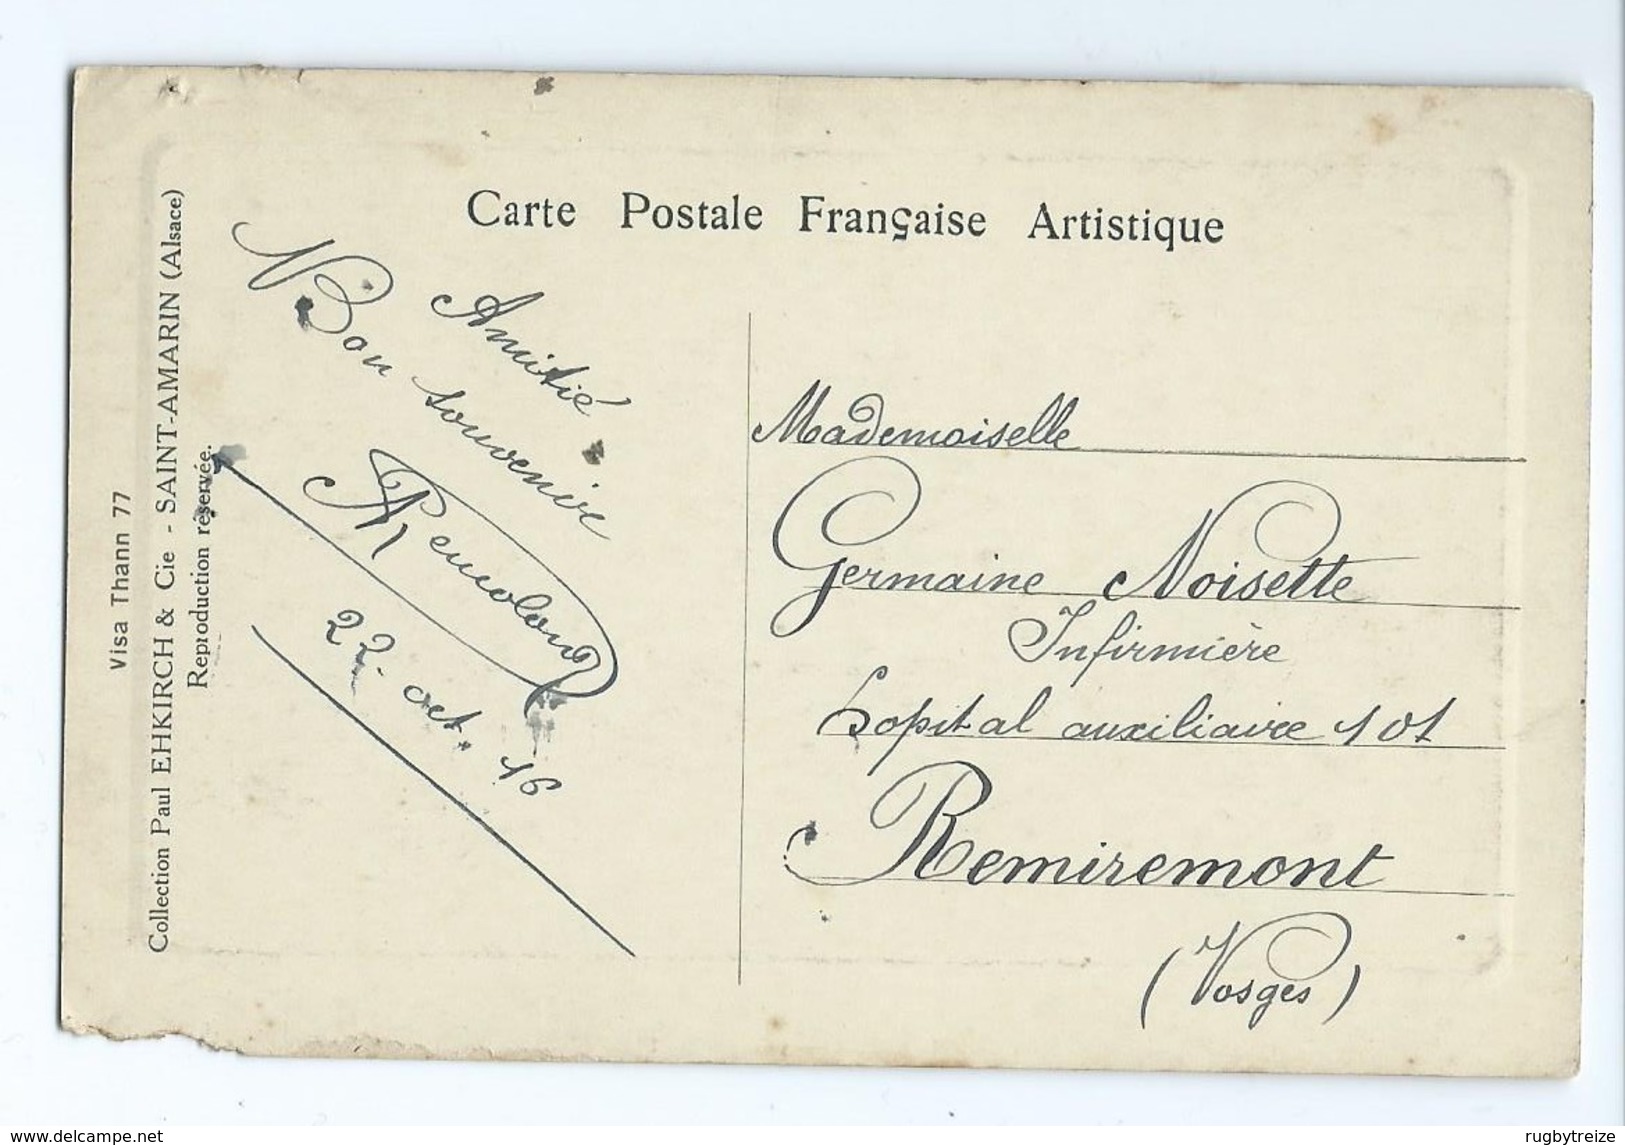 Carte Postale Française Artistique
Visa Thann 77
Collection Paul EHKIRCH & Cie - SAINT-AMARIN (Alsace)
Reproduction réservée.
Amitié
Bon souvenir
22. oct. 16
Mademoiselle
Germaine Noisette
Infirmière
hopital auxiliaire 101
Remiremont
(Vosges)
www.delcampe.net
rugbytreize